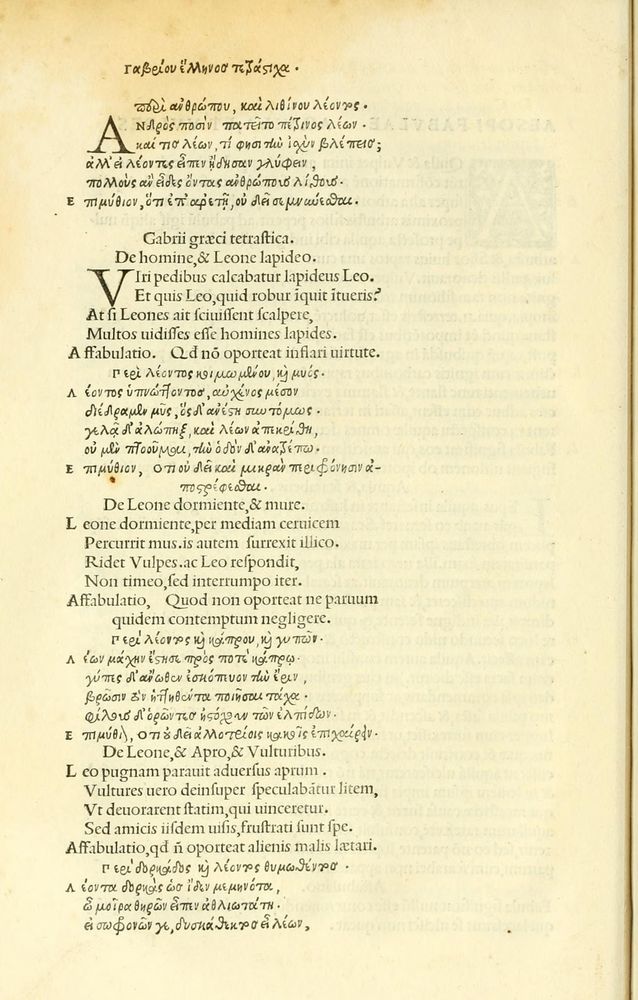 Γαβρίου ἕλληνοσ τετράστιχα.
περὶ ἀνθρώπου, καὶ λιθίνου λέοντος.
ΑΝΔΡὸς ποσὶν πατεῖτο πέτρινος λέων.
καί τις λέων, τί φησι τὴν ἰσχὺν βλέπεις;
ἀλλ' εἰ λέοντες εἶπεν ᾔδησαν γλύφειν,
πολλοὺς ἂν εἶδες ὄντας ἀνθρώπους λίθους.
Ἐπιμύθιον, ὅτι ἐπ' ἀρετῇ, οὐ δεῖ σεμνύεσθαι.
Gabrii græci tetrastica.
De homine, & Leone lapideo.
VIri pedibus calcabatur lapideus Leo.
Et quis Leo, quid robur īquit ītueris?
At si Leones ait sciuissent scalpere,
Multos uidisses esse homines lapides.
Affabulatio. Qd nō oporteat inflari uirtute.
Περὶ λέοντος κοιμωμένου, κὶ μυός.
Λέοντος ὑπνώττοντοσ, αὐχένος μέσον
διέδραμεν μῦς, ὃς δ' ἀνέστη συντόμως.
γελᾷ δ' ἀλώπηξ, καὶ λέων ἀπεκρίθη,
οὐ μῦν πτοοῦμαι, τὴν ὁδὸν δ' ἀνατρέπω.
Ἐπιμύθιον, ὅτι οὐ δεῖ καὶ μικρὰν περιφρόνησιν ἀ-
ποστρέφεσθαι.
De Leone dormiente, & mure.
Leone dormiente, per mediam ceruicem
Percurrit mus. is autem surrexit illico.
Ridet Vulpes. ac Leo respondit,
Non timeo, sed interrumpo iter.
Affabulatio, Quod non oporteat ne paruum
quidem contemptum negligere.
Περὶ λέοντος κὶ κάπρου, κὶ γυπῶν.
Λέων μάχην ἔστησε πρός ποτε κάπρῳ.
γύπες δ' ἄνωθεν ἐσκόπευον τὴν ἔριν,
βρῶσιν τὸν ἡττηθέντα ποιῆσαι τάχα.
φίλους δ' ὁρῶντες ἠστόχουν τῶν ἐλπίδων.
Ἐπιμύθι, ὅτι οὐ δεῖ ἀλλοτρίοις κακοῖς ἐπιχαίρειν.
De Leone, & Apro, & Vulturibus.
Leo pugnam parauit aduersus aprum.
Vultures uero deinsuper speculabātur litem,
Vt deuorarent statim, qui uinceretur.
Sed amicis iisdem uisis, frustrati sunt spe.
Affabulatio, qd ñ oporteat alienis malis lætari.
Περὶ δορκάδος κὶ λέοντος θυμωθέντος.
Λέοντα δορκὰς ὡς ἴδεν μεμηνότα,
ὦ μοῖρα θηρῶν εἶπεν ἀθλιωτάτη.
εἰ σωφρονῶν γε, δυσκάθεκτος εἶ λέων,